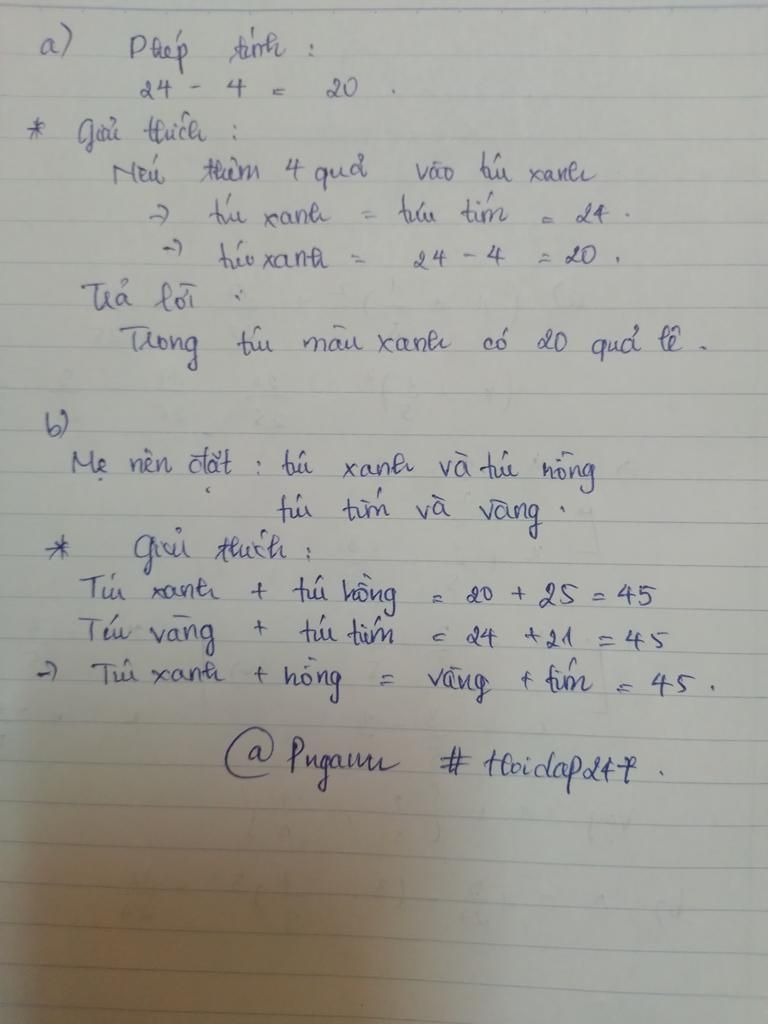 a) Phép tính :
24 - 4 = 20 .
* Giải thích :
Nếu thêm 4 quả vào túi xanh
→ túi xanh = túi tím = 24 .
→ túi xanh = 24 - 4 = 20 .
Trả lời :
Trong túi màu xanh có 20 quả lê .
b)
Mẹ nên đặt : túi xanh và túi hồng
túi tím và vàng .
* Giải thích :
Túi xanh + túi hồng = 20 + 25 = 45
Túi vàng + túi tím = 24 + 21 = 45
→ Túi xanh + hồng = vàng + tím = 45 .
@ # Hoidap247 .